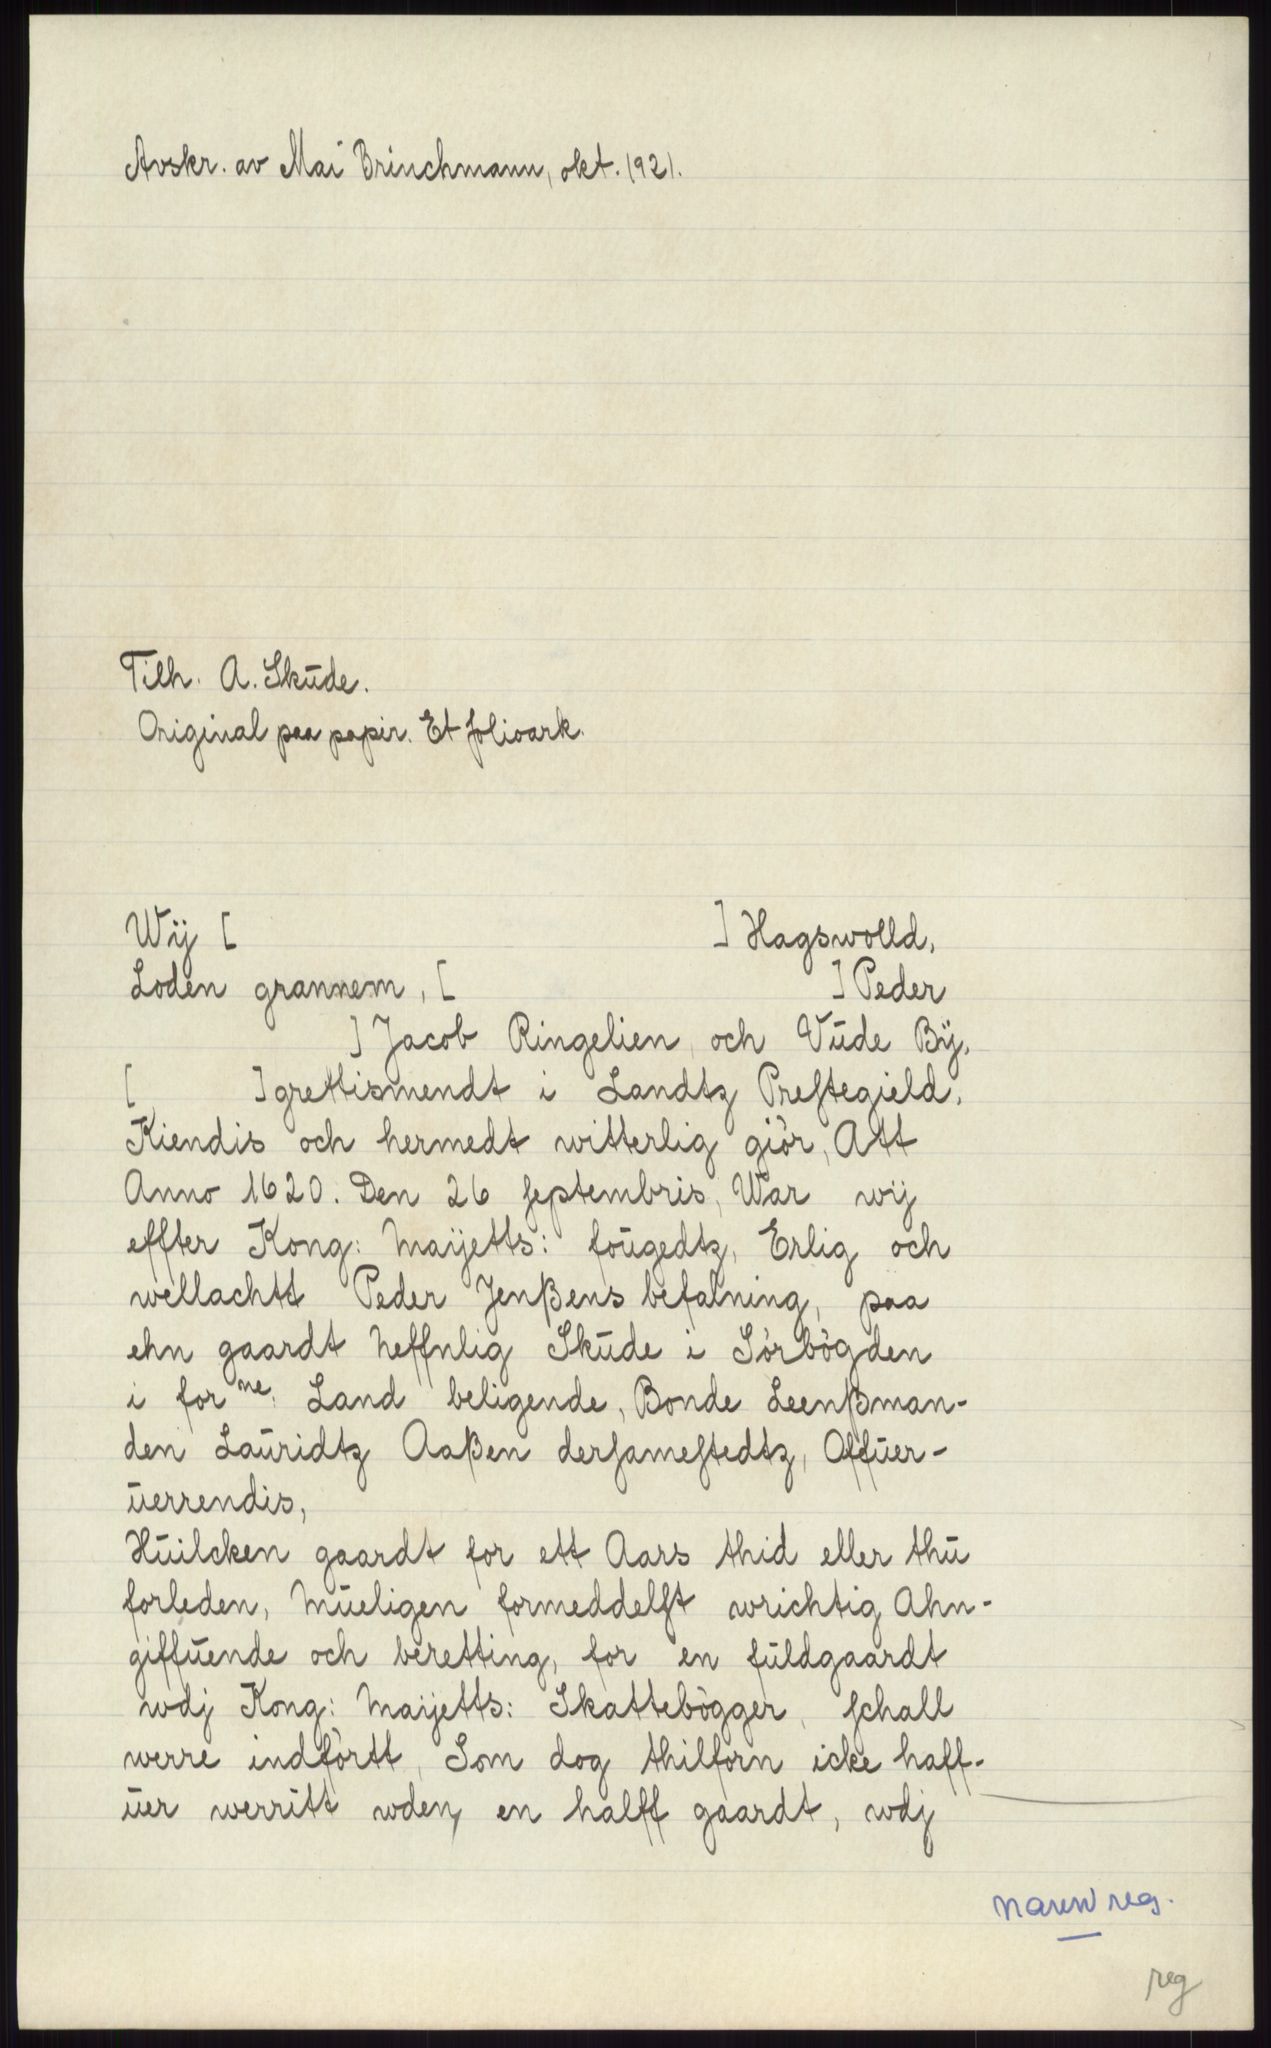 Avskr. av Mai Brinchmann, okt. 1921.
Tilh. A. Skūde.
Original paa papir. Et folioark.
Wij [ ] Hagswolld,
Loden grannem, [ ] Peder
] Jacob Ringelien, och Vūde Bÿ,
[ ] grettismendt i Landtz Preſtegield,
Kiendis och hermedt witterlig giör, Att
Anno 1620. Den 26 ſeptembris, War wij
effter Kong: Maÿetts: foūgedtz, Erlig och
wellachtt Peder Jenßens befalning, paa
ehn gaardt Neffnlig Skūde i Sörbögden
i for ne. Land beligende, Bonde Leenßman-
den Laūridtz Aaßen derſameſtedtz, Offūer-
ūerrendis,
Hūilcken gaardt for ett Aars thid eller thū
forleden, Mūeligen formeddelſt wrichtig Ahn-
giffūende och beretting, for en fūldgaardt
wdj Kong: Maÿetts: Skattebögger, ſchall
werre indförtt, Som dog thilforn icke haff-
ūer werritt wden, en halff gaardt, wdj
navnreg.
reg